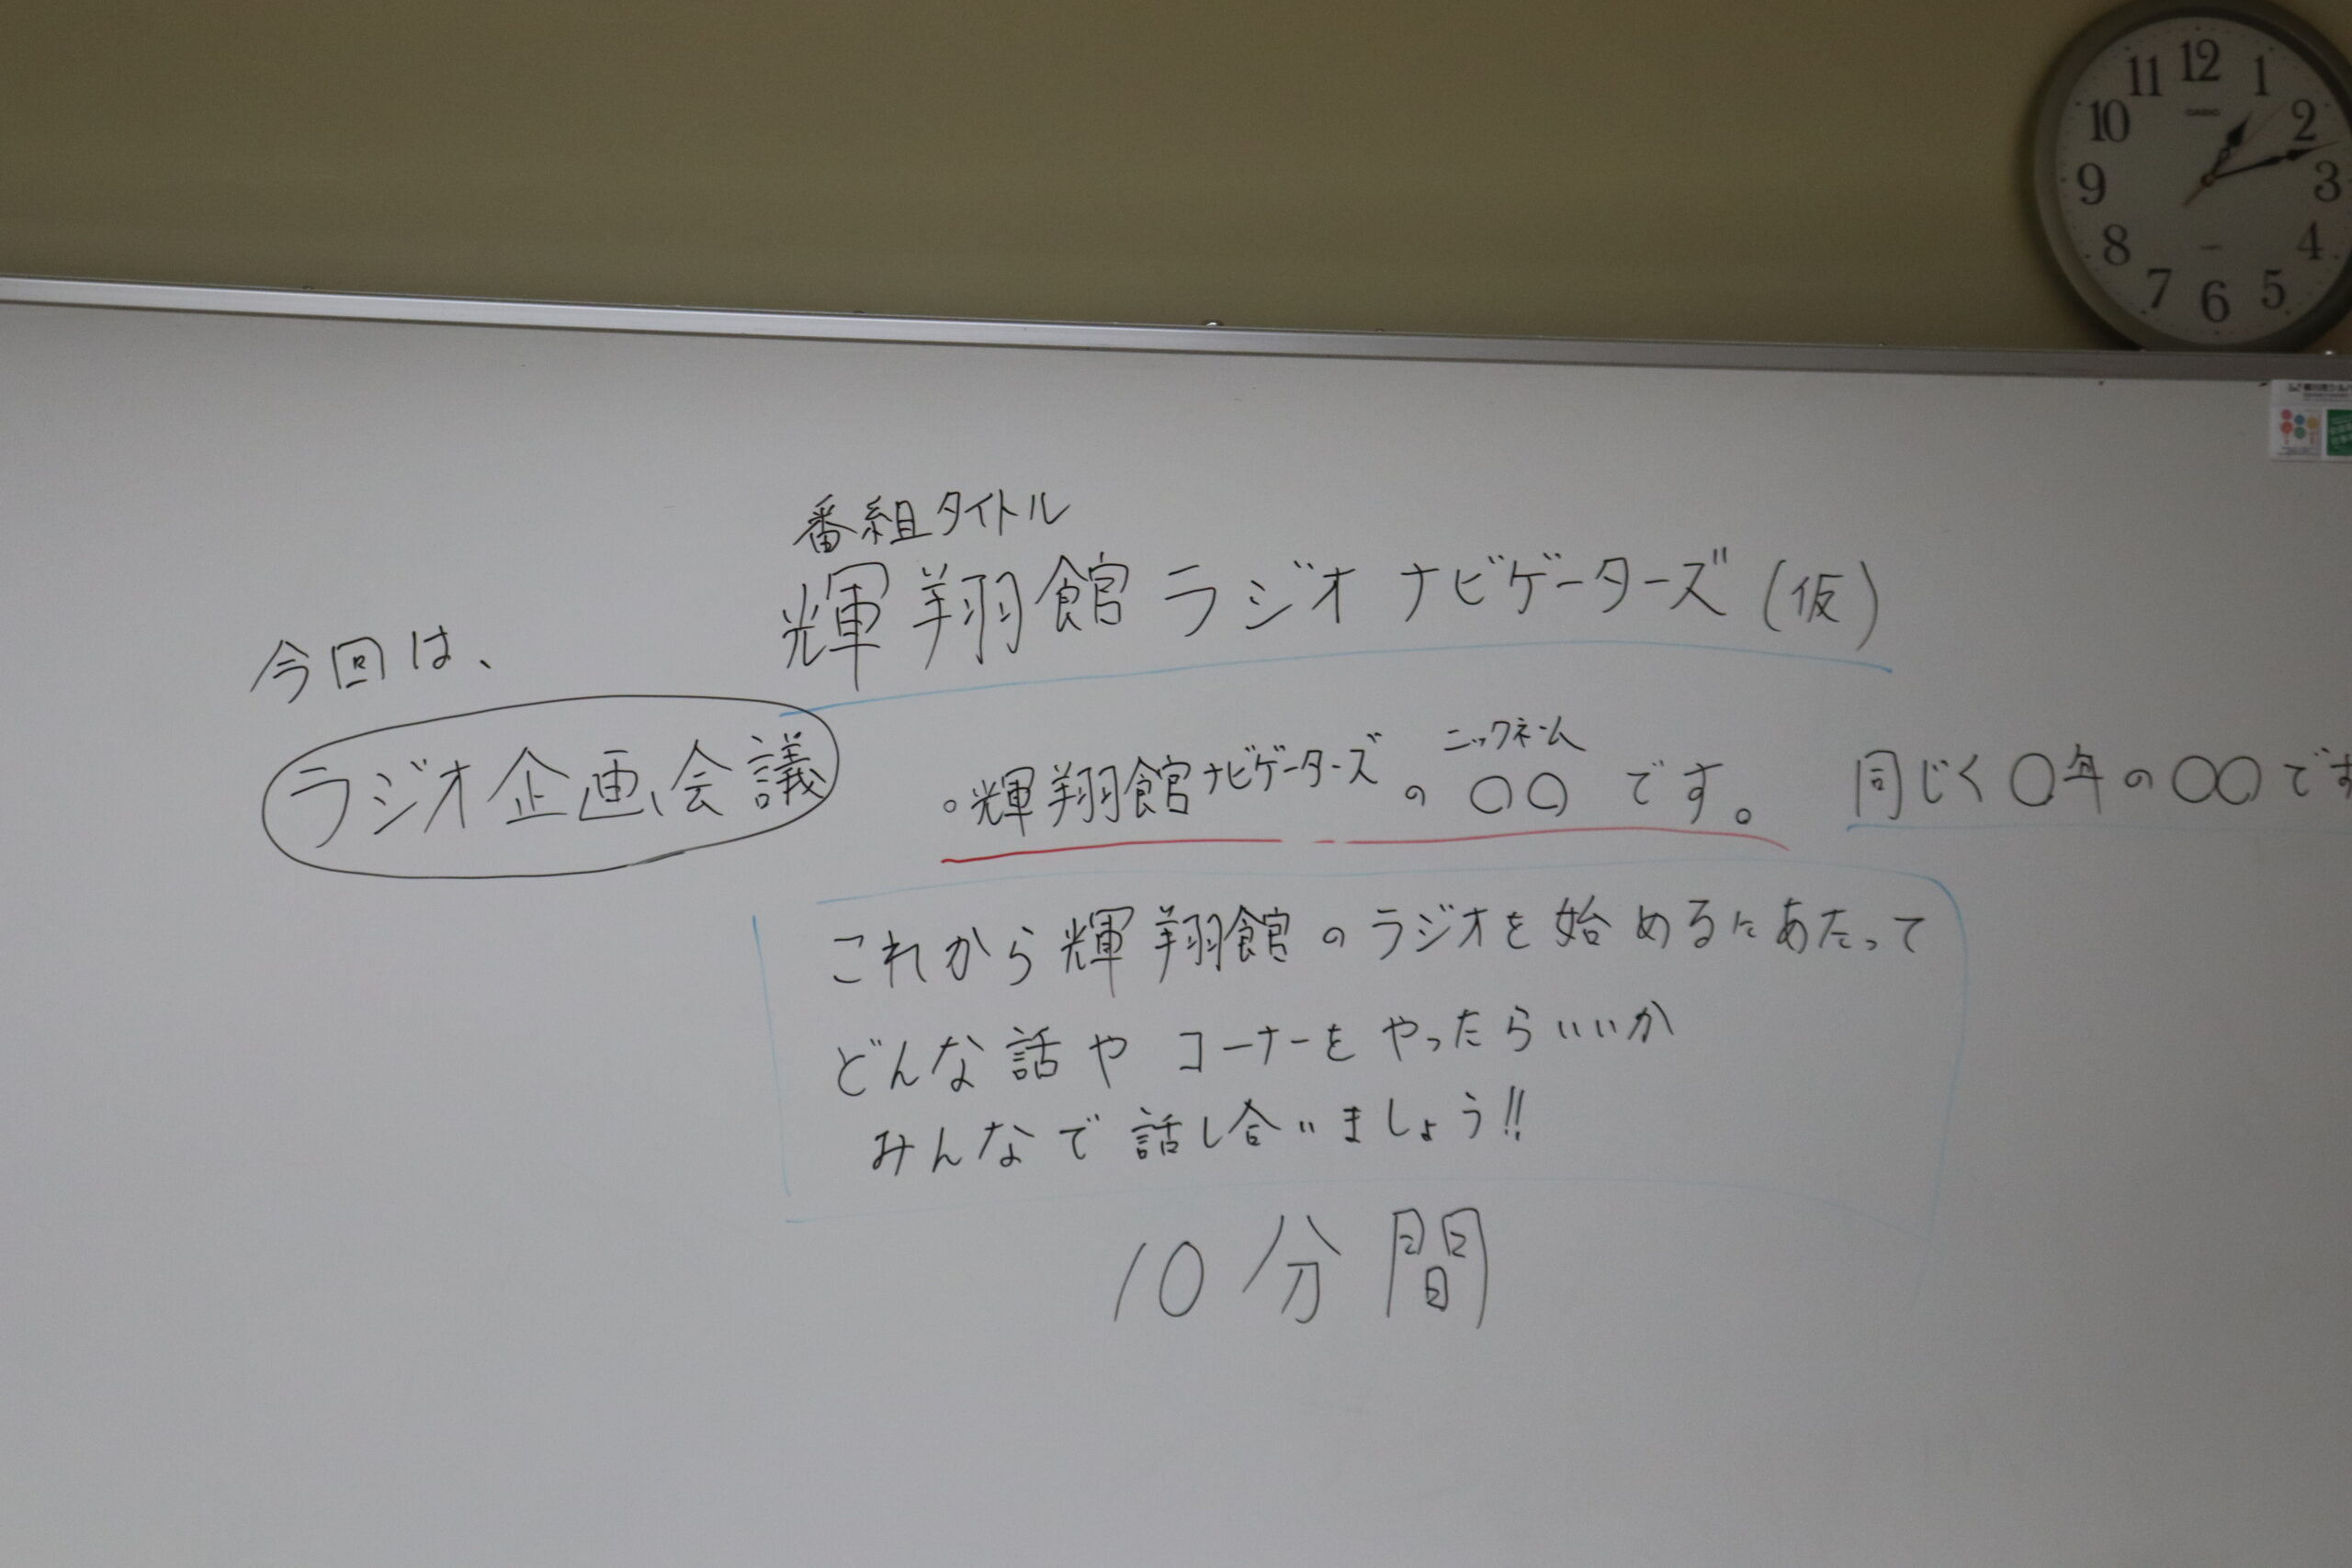 12
11
1
CASIO
10
2
9
3
8
4
7
5
6
番組タイトル
輝翔館ラジオ ナビゲーターズ(仮)
今回は、
ラジオ企画会議
ニックネーム
。輝翔館ナビゲーターズの〇〇です。 同じく〇年の〇〇です
これから輝翔館のラジオを始めるにあたって
どんな話やコーナーをやったらいいか
みんなで話し合いましょう!!
10分間